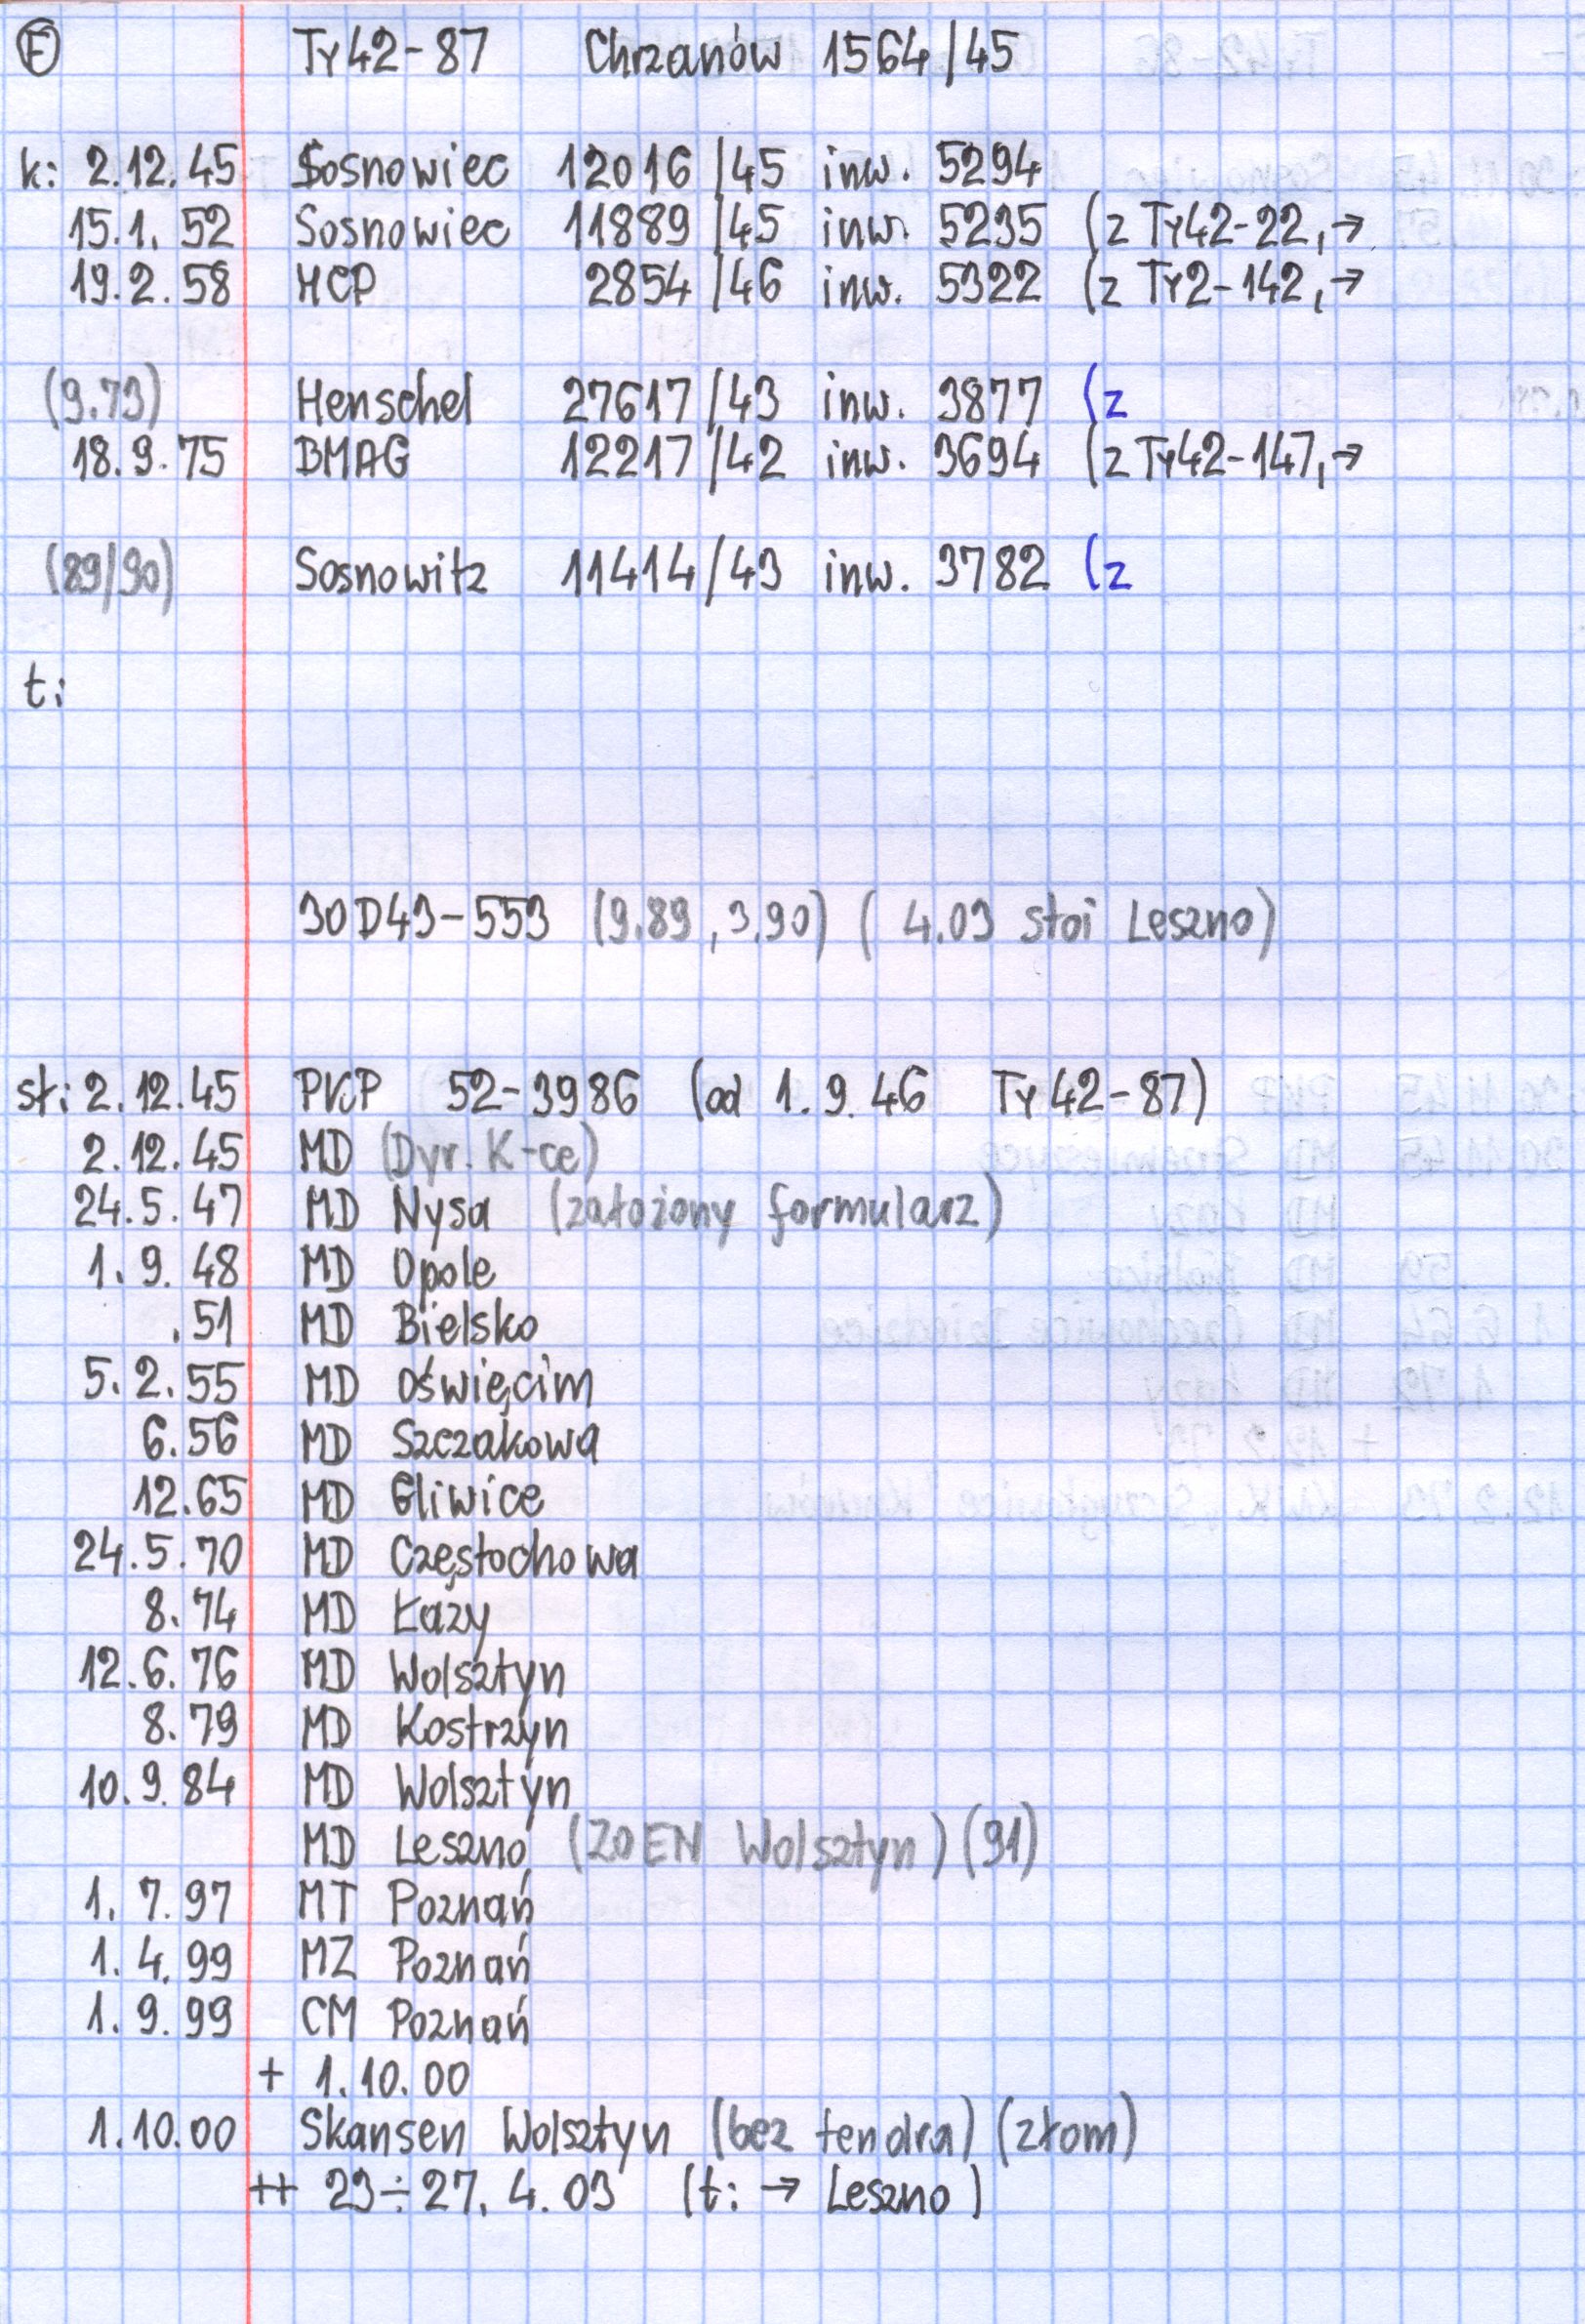 F Ty42-87 Chrzanów 1564/45
k: 2.12.45 Sosnowiec 12016/45 inw. 5294
15.1.52 Sosnowiec 11889/45 inw. 5235 (z Ty42-22,→
19.2.58 HCP 2854/46 inw. 5322 (z Ty2-142,→
(9.73) Henschel 27617/43 inw. 3877 (z
18.9.75 BMAG 12217/42 inw. 3694 (z Ty42-147,→
(89/90) Sosnowitz 11414/43 inw. 3782 (z
t:
30D43-553 (9.89, 3.90) ( 4.03 stoi Leszno)
sł: 2.12.45 PKP 52-3986 (od 1.9.46 Ty42-87)
2.12.45 MD (Dyr. K-ce)
24.5.47 MD Nysa (założony formularz)
1.9.48 MD Opole
.51 MD Bielsko
5.2.55 MD Oświęcim
6.56 MD Szczakowa
12.65 MD Gliwice
24.5.70 MD Częstochowa
8.74 MD Łazy
12.6.76 MD Wolsztyn
8.79 MD Kostrzyn
10.9.84 MD Wolsztyn
MD Leszno (ZOEN Wolsztyn) (91)
1.7.97 MT Poznań
1.4.99 MZ Poznań
1.9.99 CM Poznań
+ 1.10.00
1.10.00 Skansen Wolsztyn (bez tendra) (złom)
++ 23÷27.4.03 (t: → Leszno)